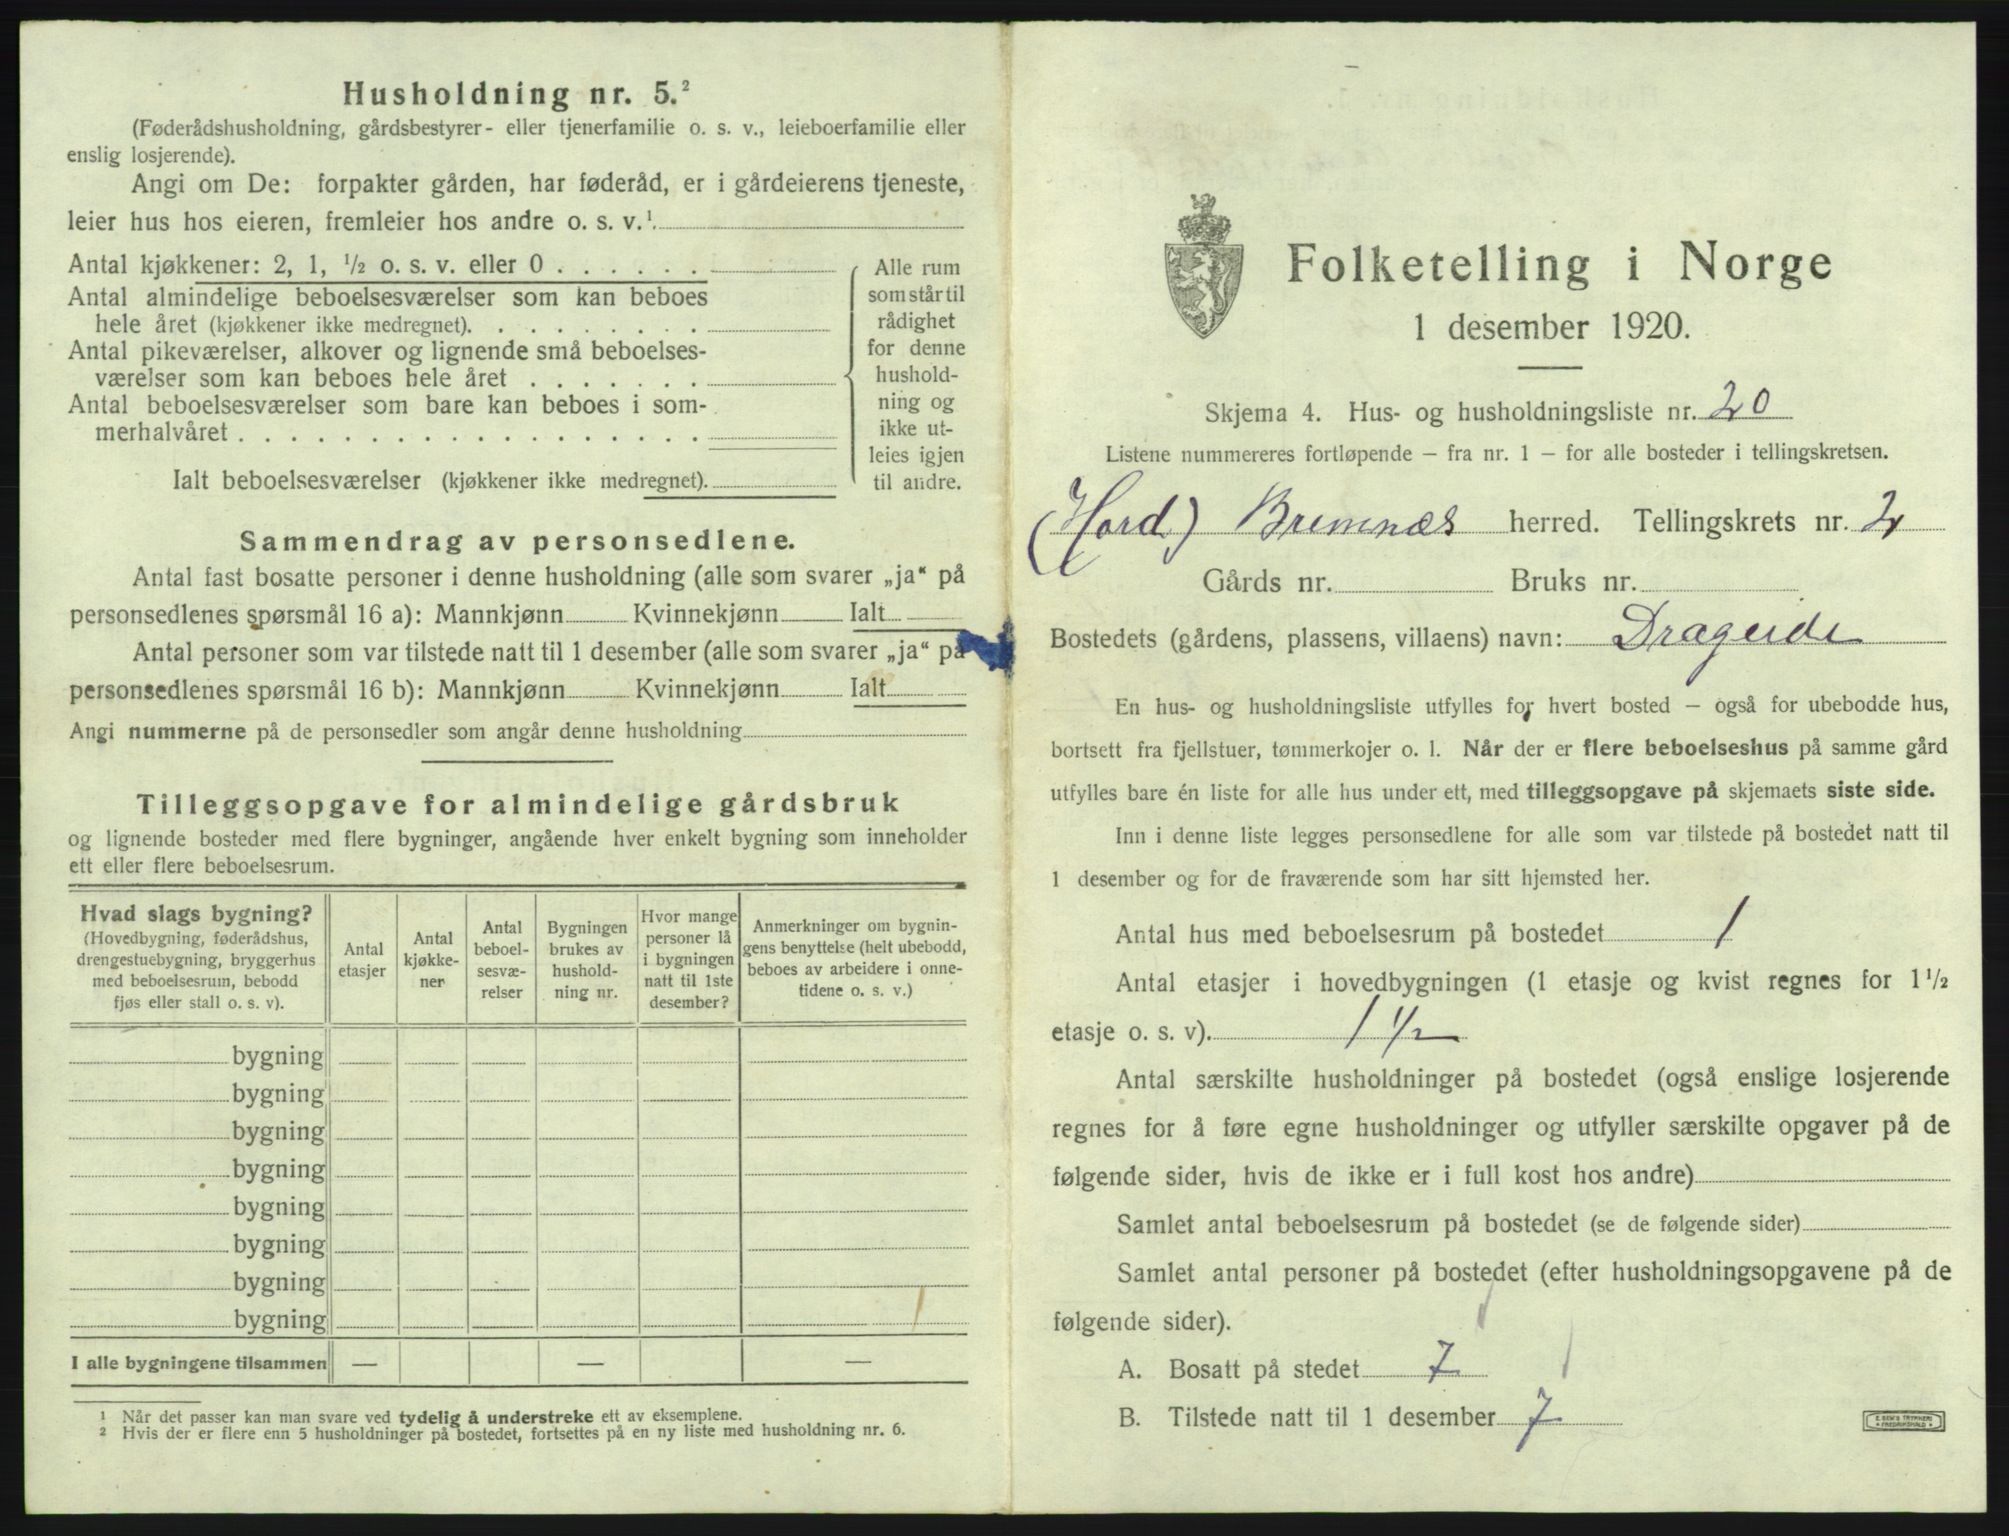 Husholdning nr. 5.²
(Føderådshusholdning, gårdsbestyrer- eller tjenerfamilie o. s. v., leieboerfamilie eller
enslig losjerende).
Angi om De: forpakter gården, har føderåd, er i gårdeierens tjeneste,
leier hus hos eieren, fremleier hos andre o. s. v.¹
Antal kjøkkener: 2, 1, ½ o. s. v. eller 0 . . . . . .
Antal almindelige beboelsesværelser som kan beboes
hele året (kjøkkener ikke medregnet). . . . . . . . .
Antal pikeværelser, alkover og lignende små beboelses-
værelser som kan beboes hele året . . . . . . .
Antal beboelsesværelser som bare kan beboes i som-
merhalvåret . . . . . . . . . . . . . . . . . .
Ialt beboelsesværelser (kjøkkener ikke medregnet).
Alle rum
som står til
rådighet
for denne
hushold-
ning og
ikke ut-
leies igjen
til andre.
Sammendrag av personsedlene.
Antal fast bosatte personer i denne husholdning (alle som svarer „ja“ på
personsedlenes spørsmål 16 a): Mannkjønn Kvinnekjønn Ialt
Antal personer som var tilstede natt til 1 desember (alle som svarer „ja“ på
personsedlenes spørsmål 16 b): Mannkjønn Kvinnekjønn Ialt
Angi nummerne på de personsedler som angår denne husholdning
Tilleggsopgave for almindelige gårdsbruk
og lignende bosteder med flere bygninger, angående hver enkelt bygning som inneholder
ett eller flere beboelsesrum.
Hvad slags bygning?
(Hovedbygning, føderådshus,
drengestuebygning, bryggerhus
med beboelsesrum, bebodd
fjøs eller stall o. s. v).
Antal
etasjer
Antal
kjøkke-
ner
Antal
beboel-
sesvæ-
relser
Bygningen
brukes av
hushold-
ning nr.
Hvor mange
personer lå
i bygningen
natt til 1ste
desember?
Anmerkninger om bygnin-
gens benyttelse (helt ubebodd,
beboes av arbeidere i onne-
tidene o. s. v.)
bygning
bygning
bygning
bygning
bygning
bygning
bygning
bygning
I alle bygningene tilsammen — — —
¹ Når det passer kan man svare ved tydelig å understreke ett av eksemplene.
² Hvis der er flere enn 5 husholdninger på bostedet, fortsettes på en ny liste med husholdning nr. 6.
Folketelling i Norge
1 desember 1920.
Skjema 4. Hus- og husholdningsliste nr. 20
Listene nummereres fortløpende – fra nr. 1 – for alle bosteder i tellingskretsen.
(Hord) Bremnæs herred. Tellingskrets nr. 2
Gårds nr. Bruks nr.
Bostedets (gårdens, plassens, villaens) navn: Drageide
En hus- og husholdningsliste utfylles for hvert bosted – også for ubebodde hus,
bortsett fra fjellstuer, tømmerkojer o. l. Når der er flere beboelseshus på samme gård
utfylles bare én liste for alle hus under ett, med tilleggsopgave på skjemaets siste side.
Inn i denne liste legges personsedlene for alle som var tilstede på bostedet natt til
1 desember og for de fraværende som har sitt hjemsted her.
Antal hus med beboelsesrum på bostedet 1
Antal etasjer i hovedbygningen (1 etasje og kvist regnes for 1½
etasje o. s. v). 1 ½
Antal særskilte husholdninger på bostedet (også enslige losjerende
regnes for å føre egne husholdninger og utfyller særskilte opgaver på de
følgende sider, hvis de ikke er i full kost hos andre)
Samlet antal beboelsesrum på bostedet (se de følgende sider)
Samlet antal personer på bostedet (efter husholdningsopgavene på de
følgende sider).
A. Bosatt på stedet 7
B. Tilstede natt til 1 desember 7